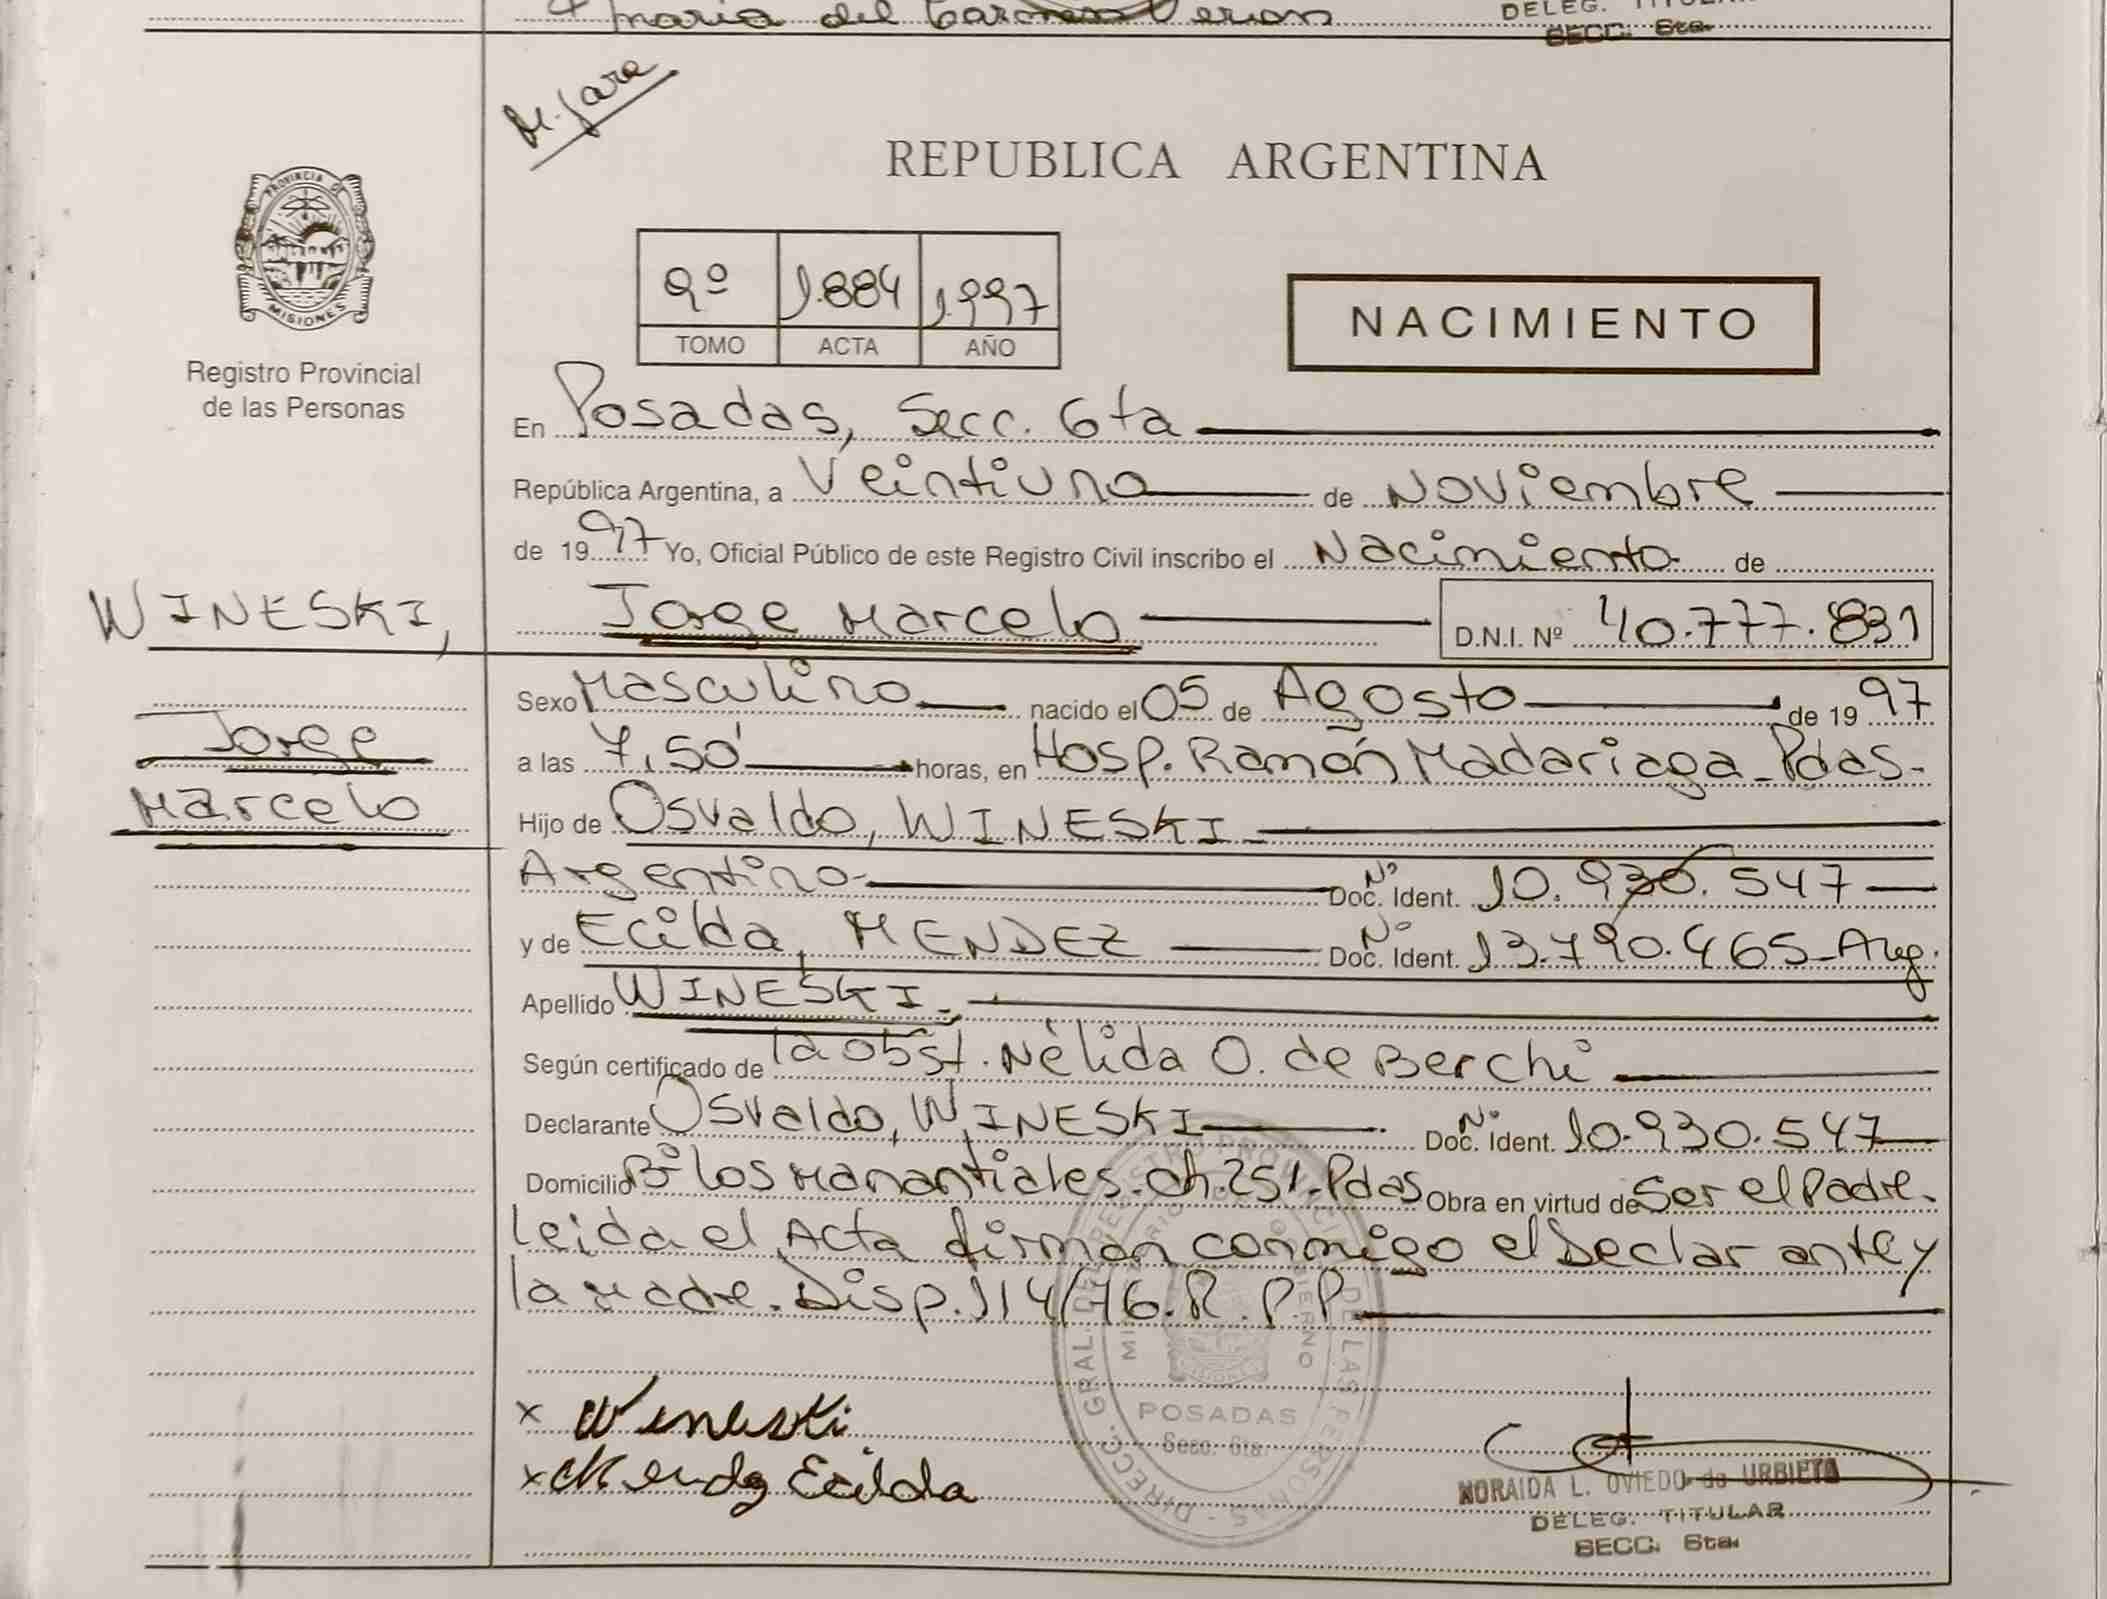 maria del Carmen Veron
DELEG. TITULAR
SECC. 6ta.
REPUBLICA ARGENTINA
PROVINCIA DE
MISIONES
Registro Provincial
de las Personas
9º 1.884 1.997
TOMO ACTA AÑO
NACIMIENTO
En Posadas, Secc. 6ta
República Argentina, a Veintiuno de Noviembre
de 1997 Yo, Oficial Público de este Registro Civil inscribo el Nacimiento de
WINESKI,
Jorge
Marcelo
Jorge Marcelo D.N.I. Nº 40.777.831
Sexo Masculino nacido el 05 de Agosto de 1997
a las 7,50' horas, en Hosp. Ramón Madariaga-Pdas-
Hijo de Osvaldo, WINESKI-
Argentino- Nº Doc. Ident. 10.930.547
y de Ecilda, MENDEZ Nº Doc. Ident. 13.790.465-Arg.
Apellido WINESKI.-
Según certificado de la obst. Nélida O. de Berchi
Declarante Osvaldo, WINESKI Nº Doc. Ident. 10.930.547
Domicilio Bº los Manantiales-Ch.251-Pdas Obra en virtud de Ser el Padre.
Leida el Acta firman conmigo el Declarante y
la madre. Disp. 114/76.R.P.P.
x Wineski
x Mendez Ecilda
DIRECC. GRAL. DEL REGISTRO PROVINCIAL DE LAS PERSONAS
POSADAS
Secc. 6ta.
NORAIDA L. OVIEDO de URBIETA
DELEG. TITULAR
SECC. 6ta.